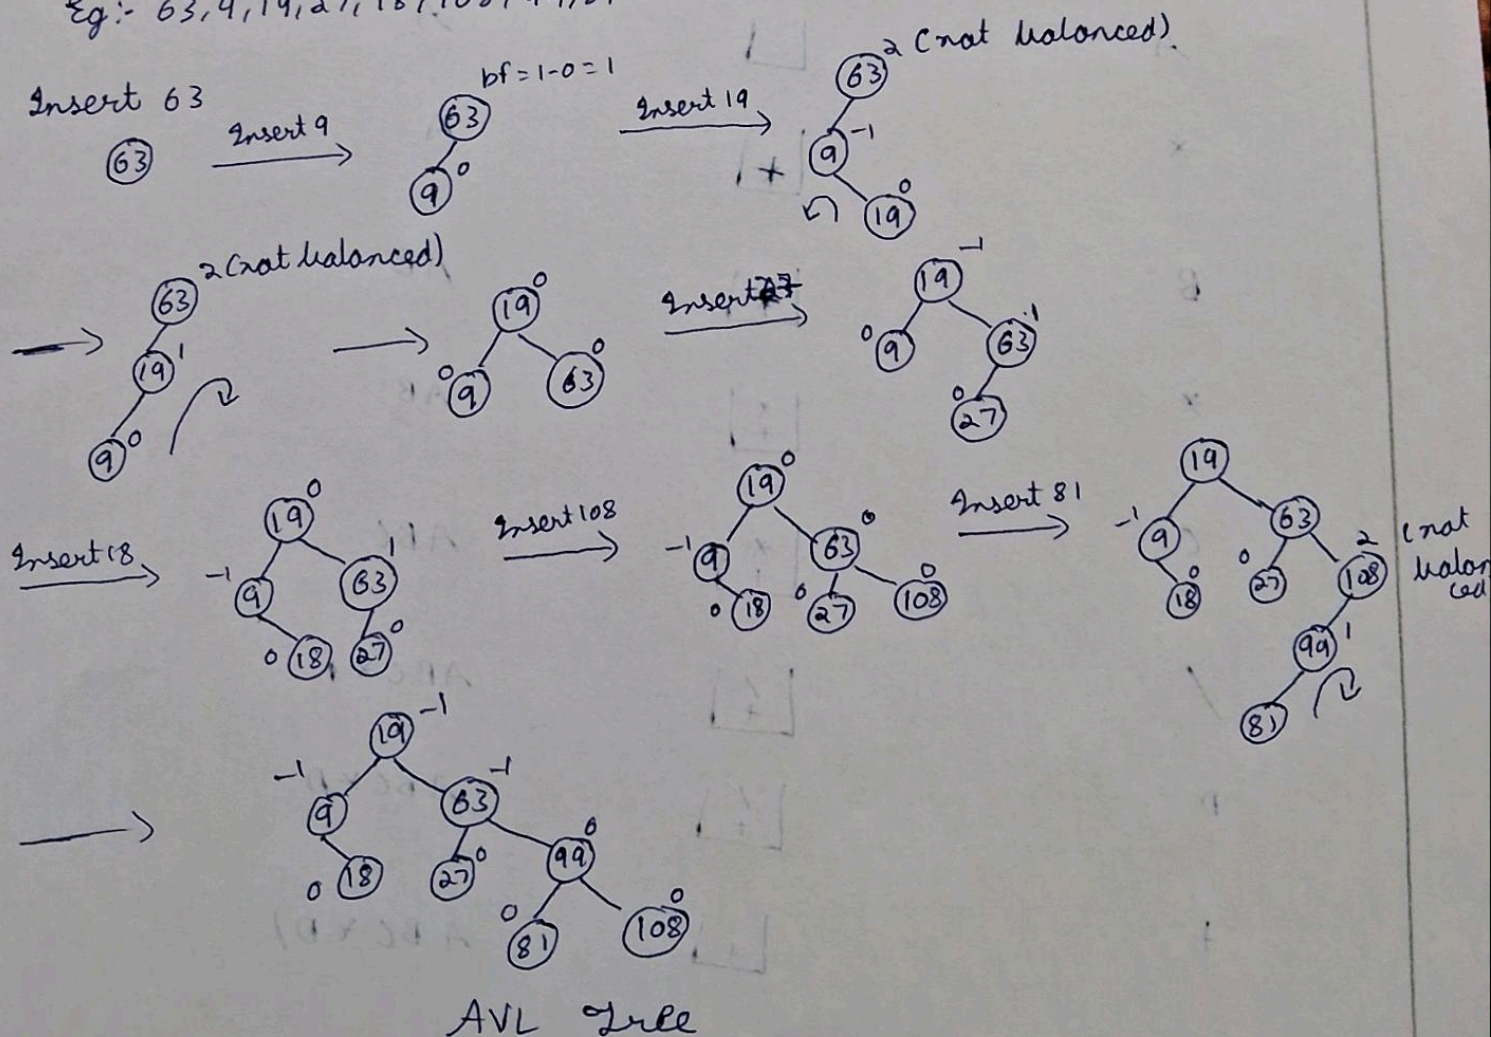 Eg:- 63, 9, 19, 27, 18, 108, 99, 81
Insert 63
63
Insert 9
bf = 1-0 = 1
63
9 0
Insert 19
63 2 (not balanced)
9 -1
19 0
63 2 (not balanced)
19 1
9 0
19 0
0 9
63 0
Insert 27
19 -1
0 9
63 1
0 27
Insert 18
19 0
-1 9
63 1
0 18
27 0
Insert 108
19 0
-1 9
63 0
0 18
0 27
108 0
Insert 81
19
-1 9
63
18 0
0 27
108 2 (not balanced)
99 1
81
19 -1
-1 9
63 -1
0 18
27 0
99 0
0 81
108 0
AVL Tree